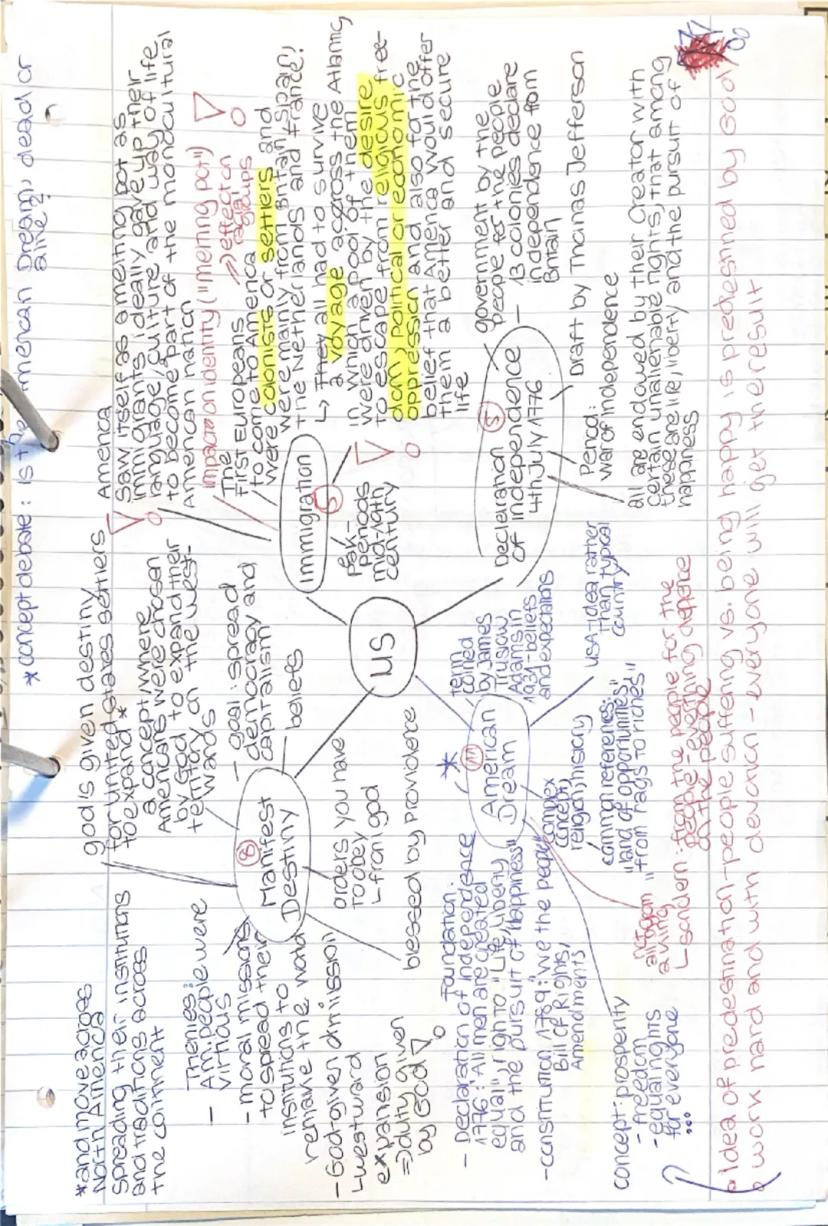 *concept debate: is the American Dream dead or
alive?
America
saw itself as a melting pot as
immigrants ideally gave up their
language, culture and way of life
to become part of the monocultural
American nation
impact on identity ("melting pot")
=> effect on
racial
groups
The
first Europeans
to come to America
were colonists or settlers and
were mainly from Britain, Spain,
the Netherlands and France!
↳ They all had to survive
a voyage across the Atlantic
in which a pool of them
were driven by the desire
to escape from religious free-
dom, political or economic
oppression and also for the
belief that America would offer
them a better and secure
life
Immigration
5
Peak-
periods
mid-19th
century
US
Decleration
of Independence
4th July 1776
5
government by the
people for the people
- 13 colonies declare
independence from
Britain
Draft by Thomas Jefferson
Period:
War of independence
all are endowed by their Creator with
certain unalienable rights, that among
these are life, liberty and the pursuit of
happiness
Manifest
Destiny
8
god is given destiny
for united states settlers
to expand*
a concept where
Americans were chosen
by God to expand their
territory on the west-
wards
- goal: spread
democracy and
capitalism
beliefs
orders you have
to obey
↳ from god
blessed by providence
*and move across
North America
spreading their institutions
and traditions across
the continent
Themes:
- Am. people were
virtious
- moral missions
to spread their
institutions to
remake the world
- God-given dmission
↳ westward
expansion
=> duty given
by God
*
American
Dream
11
term
coined
by James
Truslow
Adams in
1931-beliefs
and expectations
USA-idea rather
than typical
country
complex
concept,
religion, history
common references:
"land of opportunities"
"from rags to riches"
Foundation:
- Declaration of independence
1776: "All men are created
equal", right to "Life, Liberty
and the pursuit of Happiness"
- constitution 1789: "we the people"
Bill of Rights,
Amendments
concept: prosperity
- freedom
- equal rights
for everyone
...
: from the people for the
people - everything depence
on the people
• Idea of predestination - people suffering vs. being happy is predestined by God
• work hard and with devotion - everyone will get the result